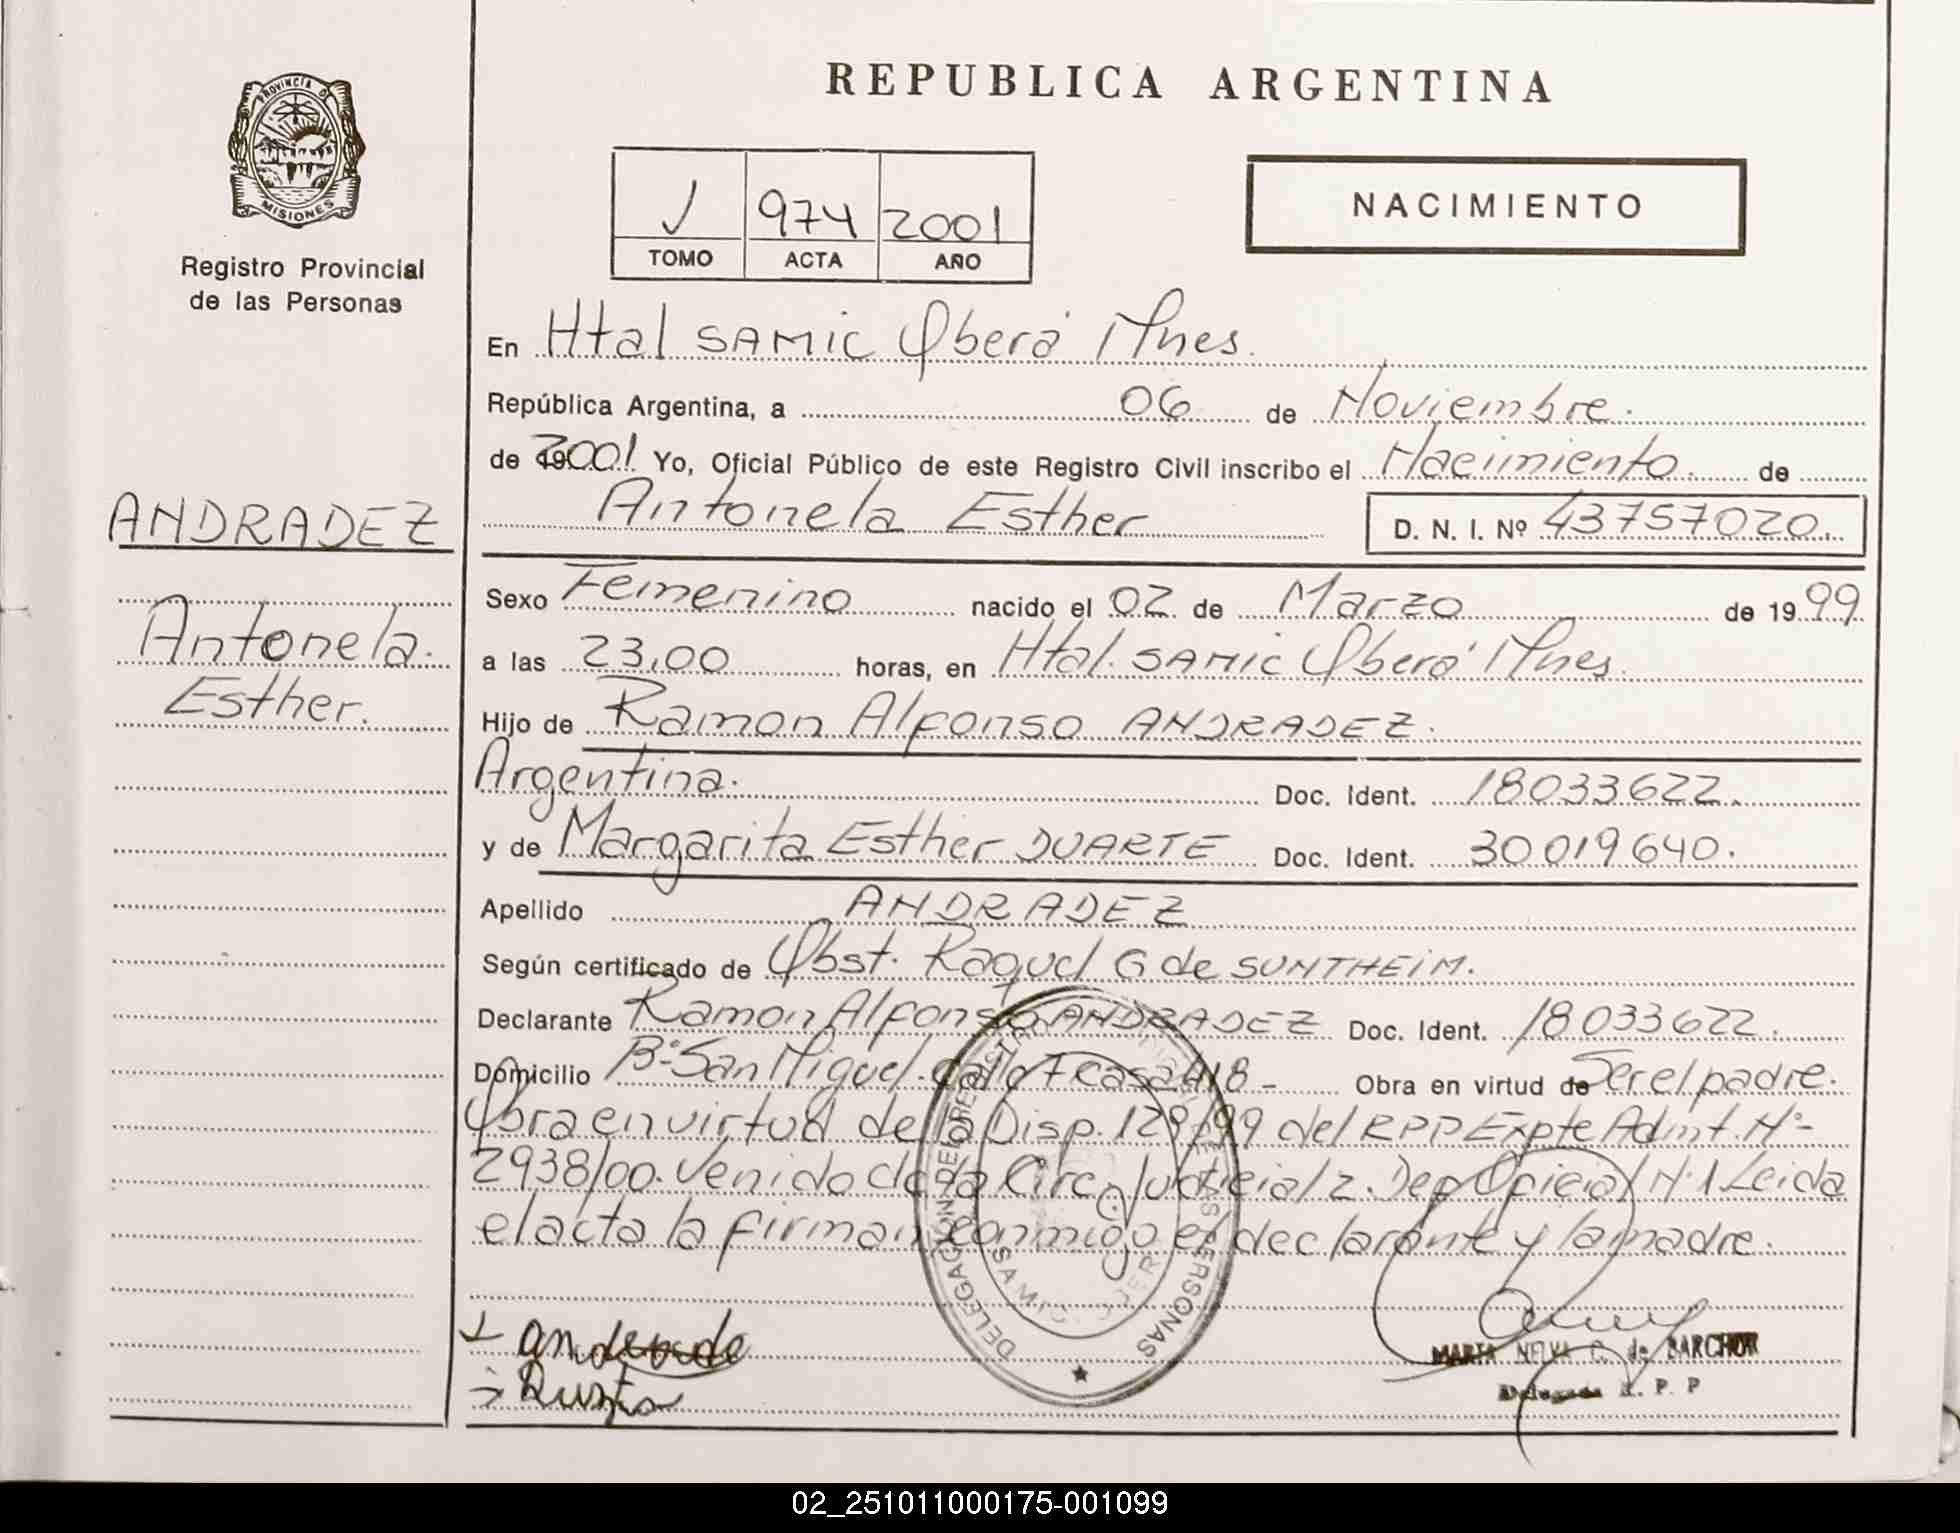 PROVINCIA D
MISIONES
Registro Provincial
de las Personas
ANDRADEZ
Antonela.
Esther.
REPUBLICA ARGENTINA
974 2001
TOMO ACTA AÑO
NACIMIENTO
En Htal SAMIC Oberá Mnes.
República Argentina, a 06 de Noviembre.
de 2001. Yo, Oficial Público de este Registro Civil inscribo el Nacimiento. de
Antonela Esther D. N. I. Nº 43757020.
Sexo Femenino nacido el 02 de Marzo de 1999
a las 23,00 horas, en Htal. SAMIC Oberá Mnes.
Hijo de Ramon Alfonso ANDRADEZ.
Argentina. Doc. Ident. 18033622.
y de Margarita Esther DUARTE Doc. Ident. 30019640.
Apellido ANDRADEZ
Según certificado de Obst. Raquel G de SUNTHEIM.
Declarante Ramon Alfonso ANDRADEZ Doc. Ident. 18033622.
Domicilio Bº San Miguel. calle 7 casa 418 - Obra en virtud de Ser el padre.
Obra en virtud de la Disp. 128/99 del RPP Expte Admt. Nº
2938/00. Venido de la Circ. Judicial 2. Def Oficial N.1 Leida
el acta la firman conmigo el declarante y la madre.
DELEGACION DEL REGISTRO PERSONAS
SAMIC
MARTA NELVA C. de BARCHUK
Delegada R. P. P
02_251011000175-001099